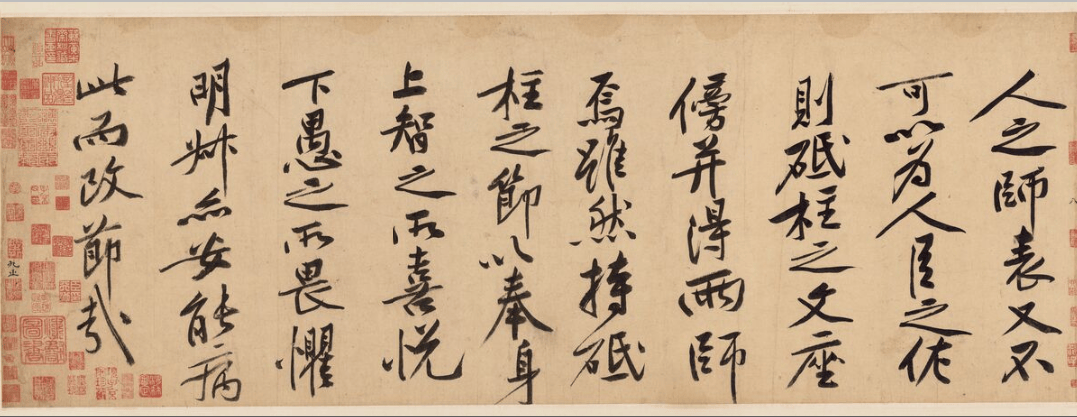 人之師表又不
可以為人臣之佐
則砥柱之文座
傍并得兩師
焉雖然持砥
柱之節以奉身
上智之所喜悅
下愚之所畏懼
明叔亦安能病
此而改節哉